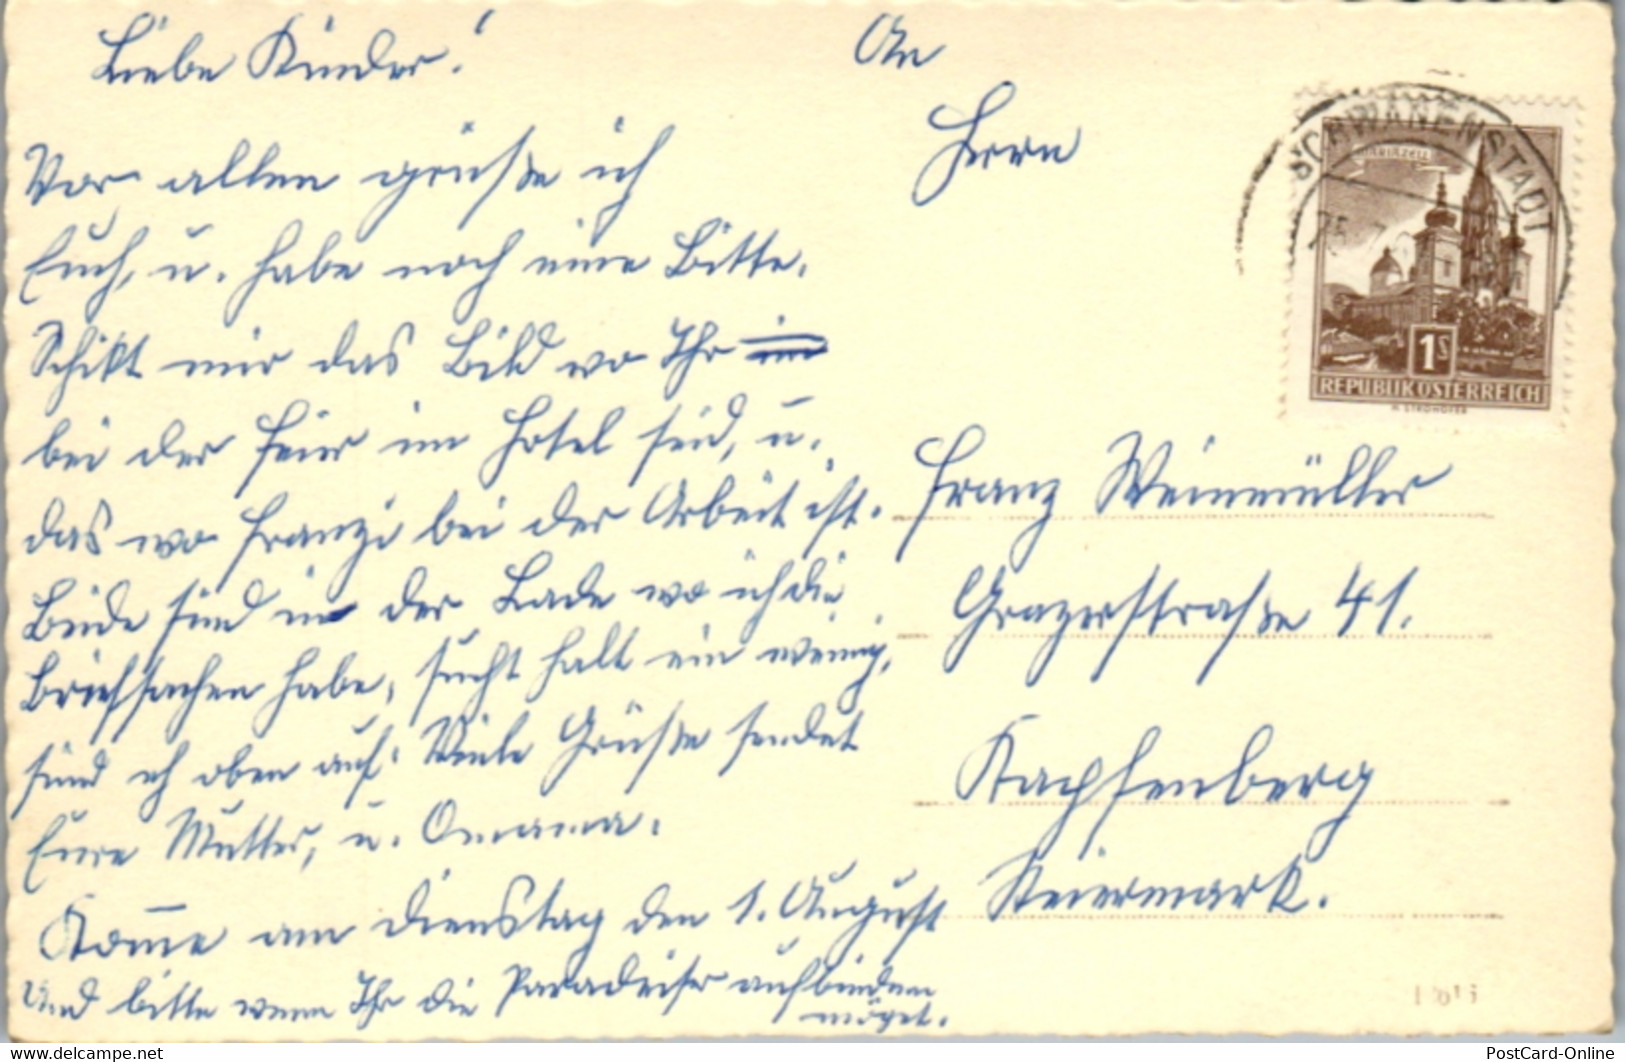 Liebe Kinder!
Vor allen grüße ich
Euch, u. habe noch eine Bitte.
Schikt mir das Bild wo Ihr
bei der Feier im Hotel seid, u.
das wo Franzi bei der Arbeit ist.
Beide sind in der Lade wo ich die
Briefsachen habe, sucht halt ein wenig,
sind eh oben auf. Viele Grüße sendet
Eure Mutter, u. Omama.
Komme am Dienstag den 1. August
Und bitte wenn Ihr die Paradeiser aufbinden
möget.
An
Herrn
Franz Weinmüller
Grazerstraße 41.
Kapfenberg
Steiermark.
SCHWANENSTADT
MARIAZELL
1S
REPUBLIK ÖSTERREICH
H. STROHOFER
delcampe.net
PostCard-Online